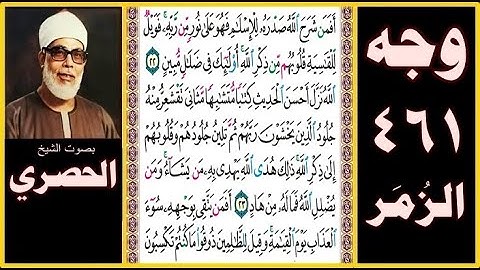 وجه
٤٦١
الزُمَر
أَفَمَن شَرَحَ ٱللَّهُ صَدْرَهُۥ لِلْإِسْلَٰمِ فَهُوَ عَلَىٰ نُورٍ مِّن رَّبِّهِۦ فَوَيْلٌ
لِّلْقَٰسِيَةِ قُلُوبُهُم مِّن ذِكْرِ ٱللَّهِ أُو۟لَٰٓئِكَ فِى ضَلَٰلٍ مُّبِينٍ ٢٢
ٱللَّهُ نَزَّلَ أَحْسَنَ ٱلْحَدِيثِ كِتَٰبًا مُّتَشَٰبِهًا مَّثَانِىَ تَقْشَعِرُّ مِنْهُ
جُلُودُ ٱلَّذِينَ يَخْشَوْنَ رَبَّهُمْ ثُمَّ تَلِينُ جُلُودُهُمْ وَقُلُوبُهُمْ
إِلَىٰ ذِكْرِ ٱللَّهِ ذَٰلِكَ هُدَى ٱللَّهِ يَهْدِى بِهِۦ مَن يَشَآءُ وَمَن
يُضْلِلِ ٱللَّهُ فَمَا لَهُۥ مِنْ هَادٍ ٢٣ أَفَمَن يَتَّقِى بِوَجْهِهِۦ سُوٓءَ
ٱلْعَذَابِ يَوْمَ ٱلْقِيَٰمَةِ وَقِيلَ لِلظَّٰلِمِينَ ذُوقُوا۟ مَا كُنتُمْ تَكْسِبُونَ
بصوت الشيخ
الحصري